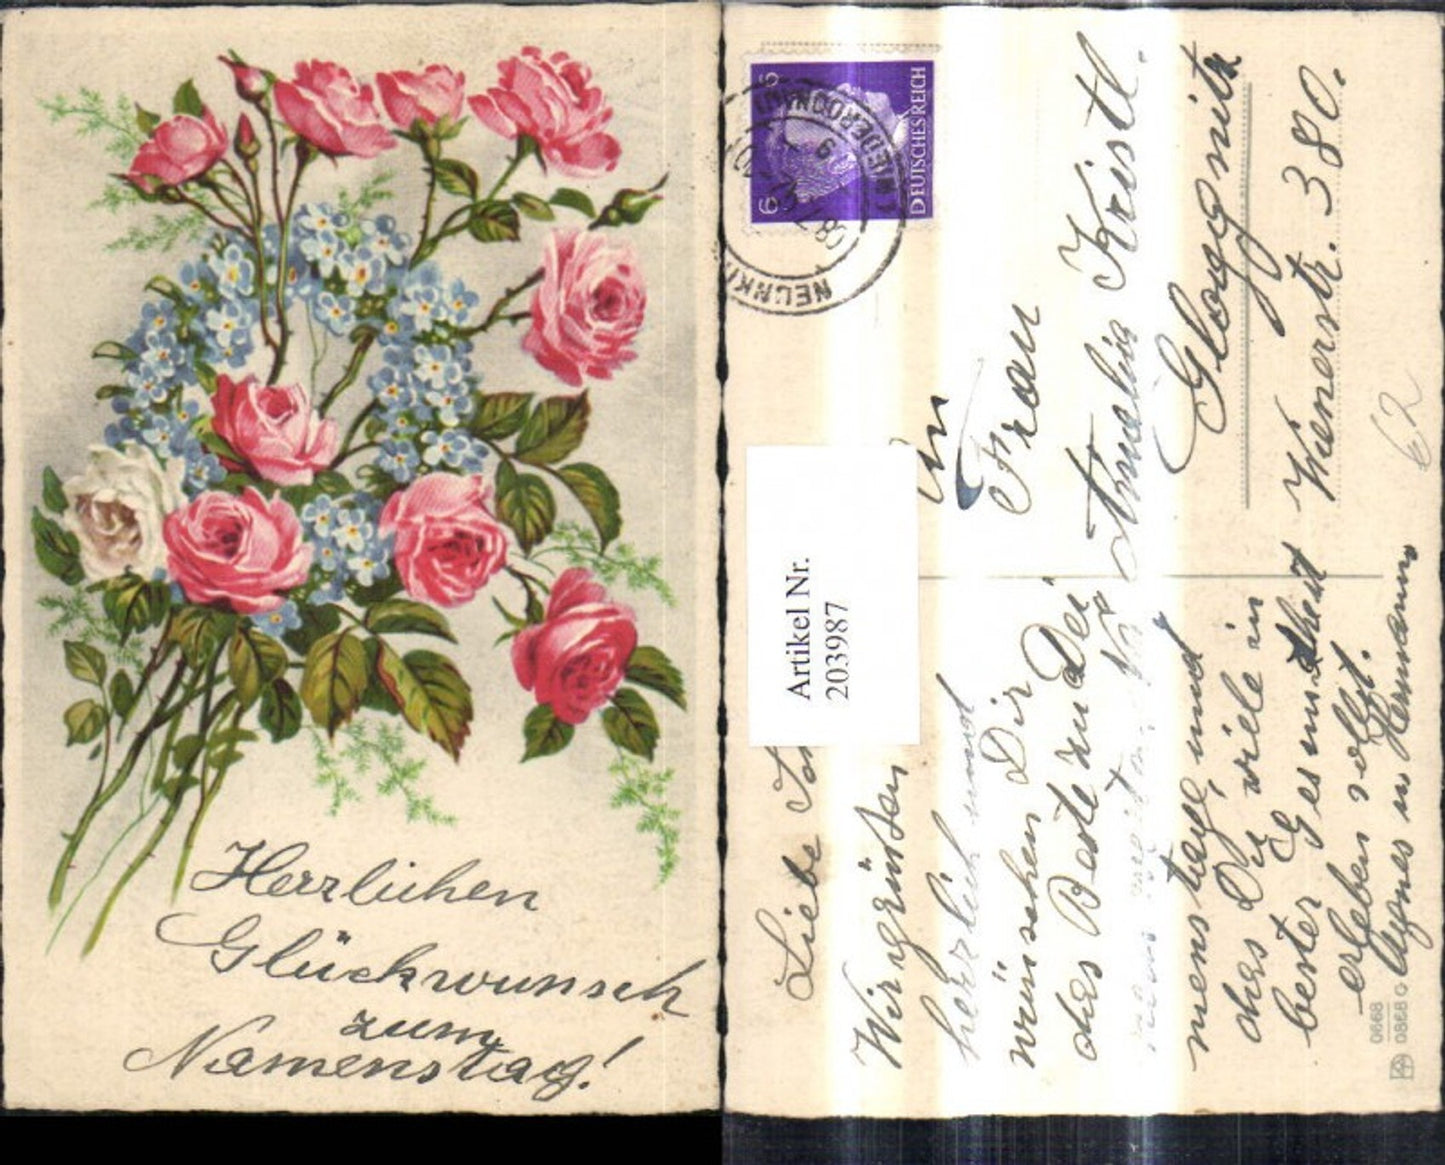 Herzlichen
Glückwunsch
zum
Namenstag!
6 6
DEUTSCHES REICH
NEUNKI
NIEDERDONAU
Artikel Nr.
203987
An
Frau
Amalia Kristl.
Gloggnitz
Wienerstr. 380.
62
Liebe
Wir grüßen
herzlich und
wünschen Dir
das Beste zu Dei
mens tage, und
das Du viele in
bester Gesundheit
erleben sollst.
Agnes u Hermann
0668
0868 G